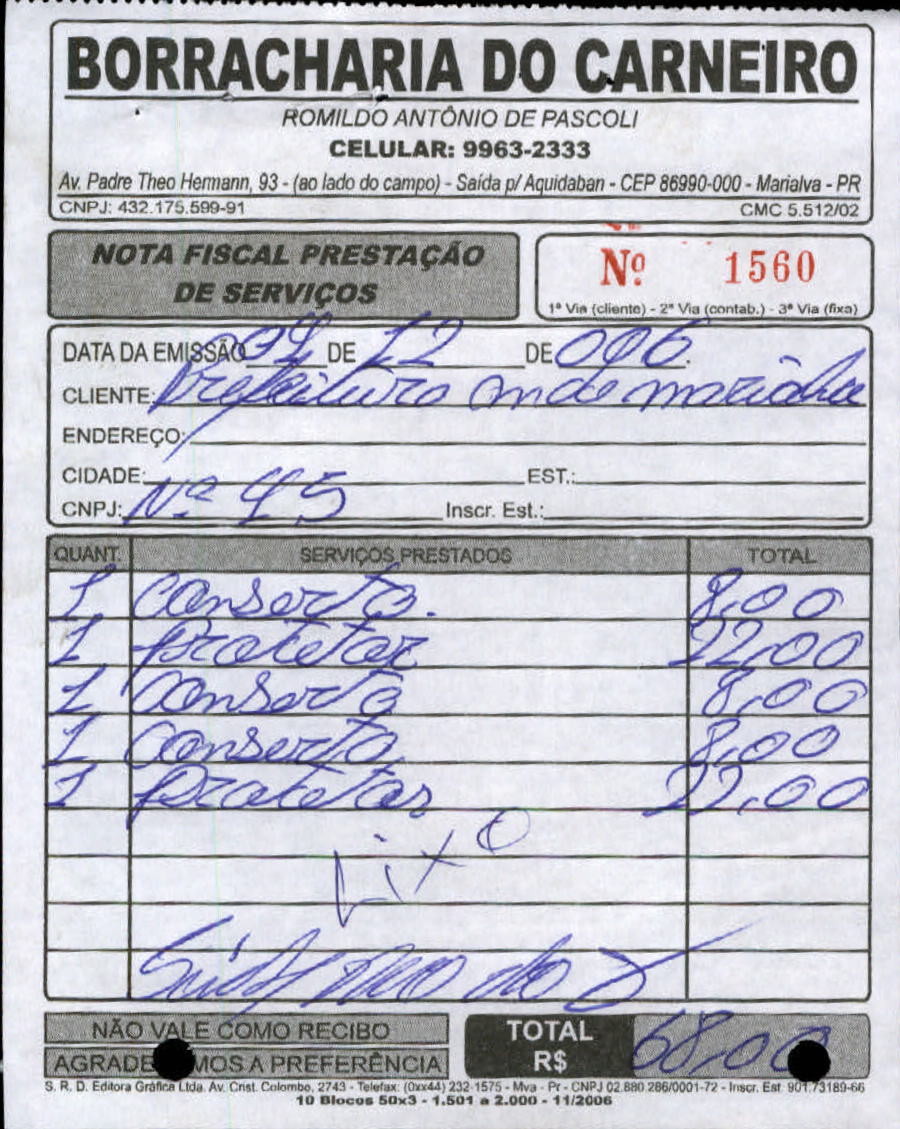 BORRACHARIA DO CARNEIRO
ROMILDO ANTÔNIO DE PASCOLI
CELULAR: 9963-2333
Av. Padre Theo Hermann, 93 - (ao lado do campo) - Saída p/ Aquidaban - CEP 86990-000 - Marialva - PR
CNPJ: 432.175.599-91 CMC 5.512/02
NOTA FISCAL PRESTAÇÃO
DE SERVIÇOS
Nº 1560
1ª Via (cliente) - 2ª Via (contab.) - 3ª Via (fixa)
DATA DA EMISSÃO DE 12 DE 006.
CLIENTE: Prefeitura
ENDEREÇO:
CIDADE: EST.:
CNPJ: Nº 45 Inscr. Est.:
QUANT. SERVIÇOS PRESTADOS TOTAL
1 Conserto. 8,00
1 protetor 22,00
1 Conserto 8,00
1 Conserto 8,00
1 protetor 22,00
Lixo
NÃO VALE COMO RECIBO
AGRADE MOS A PREFERÊNCIA
TOTAL R$ 68,00
S. R. D. Editora Gráfica Ltda. Av. Crist. Colombo, 2743 - Telefax: (0xx44) 232-1575 - Mva - Pr - CNPJ 02.880.286/0001-72 - Inscr. Est. 901.73189-66
10 Blocos 50x3 - 1.501 a 2.000 - 11/2006